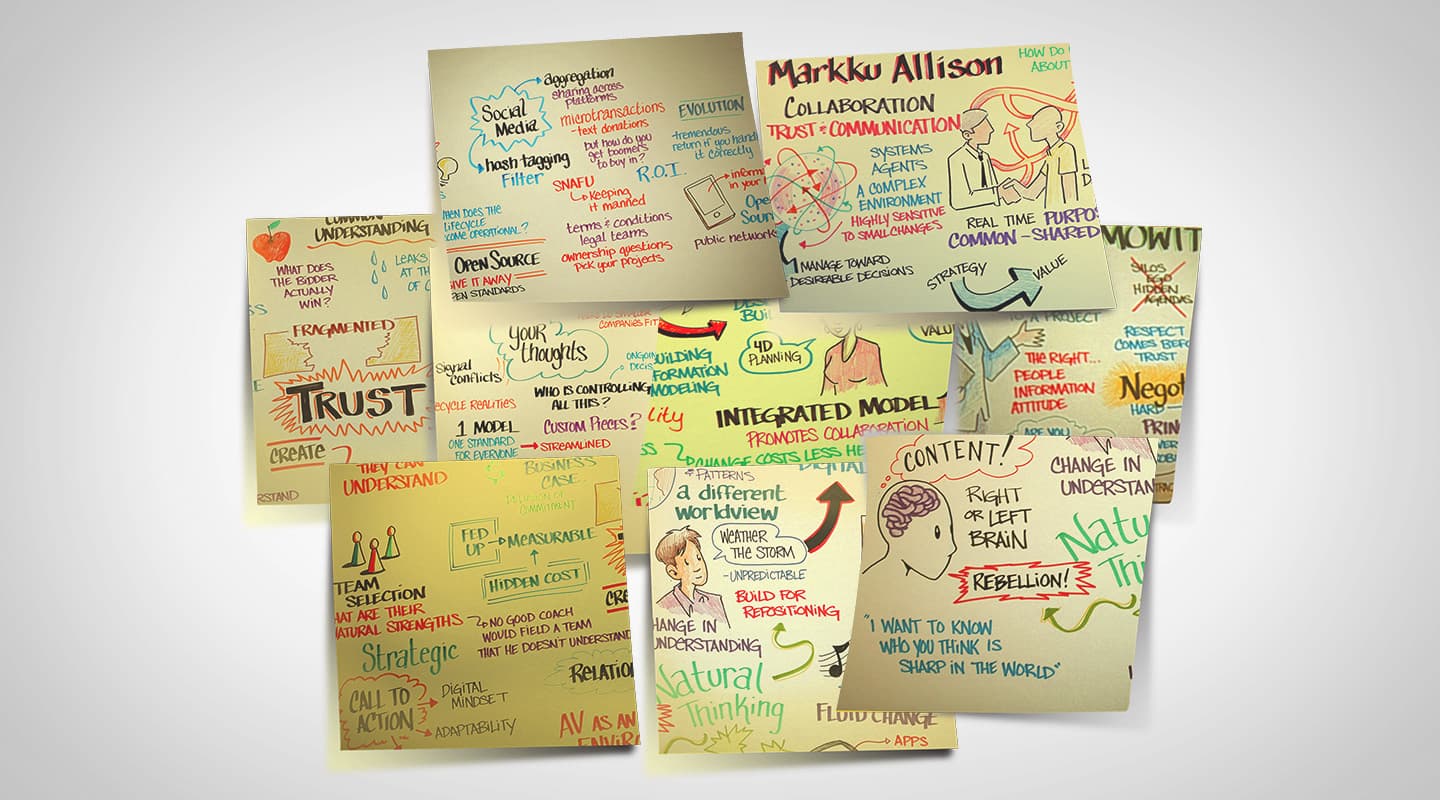 Social
Media
aggregation
sharing across
platforms
microtransactions
-text donations
but how do you
get boomers
to buy in?
EVOLUTION
-tremendous
return if you
it correctly
hash tagging
Filter
SNAFU
Keeping
it manned
R.O.I.
in your
public network
DOES THE
LIFECYCLE
OPERATIONAL?
terms & conditions
legal teams
ownership questions
pick your projects
OPEN SOURCE
IT AWAY
STANDARDS
Markku Allison
HOW DO
ABOUT
COLLABORATION
TRUST & COMMUNICATION
SYSTEMS
AGENTS
A COMPLEX
ENVIRONMENT
HIGHLY SENSITIVE
TO SMALL CHANGES
REAL TIME PURPO
COMMON - SHARED
MANAGE TOWARD
DESIREABLE DECISIONS
STRATEGY
VALUE
COMMON
UNDERSTANDING
WHAT DOES
THE BIDDER
ACTUALLY
WIN?
LEAKS
AT TH
OF
FRAGMENTED
TRUST
CREATE
RSTAND
COMPANIES FIT
YOUR
thoughts
Signal
conflicts
WHO IS CONTROLLING
ALL THIS?
CYCLE REALITIES
1 MODEL
ONE STANDARD
FOR EVERYONE
CUSTOM PIECES?
STREAMLINED
BUIL
4D
PLANNING
VALU
UILDING
FORMATION
MODELING
lity
INTEGRATED MODEL
PROMOTES COLLABORATION
CHANGE COSTS LESS HE
DIGITAL
MOWIT
SILOS
EGO
HIDDEN
AGENDAS
TO A PROJECT
THE RIGHT...
PEOPLE
INFORMATION
ATTITUDE
RESPECT
COMES BEFO
TRUST
Negot
HARD
PRIN
ARE YOU
THEY CAN
UNDERSTAND
BUSINESS
CASE
COMMITMENT
FED
UP
MEASURABLE
HIDDEN COST
TEAM
SELECTION
HAT ARE THEIR
NATURAL STRENGTHS
NO GOOD COACH
WOULD FIELD A TEAM
THAT HE DOESN'T UNDERSTAND
CRE
Strategic
RELATION
CALL TO
ACTION
DIGITAL
MINDSET
ADAPTABILITY
AV AS AN
ENVIR
PATTERNS
a different
worldview
WEATHER
THE STORM
-UNPREDICTABLE
BUILD FOR
REPOSITIONING
HANGE IN
UNDERSTANDING
Natural
Thinking
FLUID CHANGE
APPS
CONTENT!
CHANGE IN
UNDERSTAN
RIGHT
OR LEFT
BRAIN
Natu
Thi
REBELLION!
"I WANT TO KNOW
WHO YOU THINK IS
SHARP IN THE WORLD"